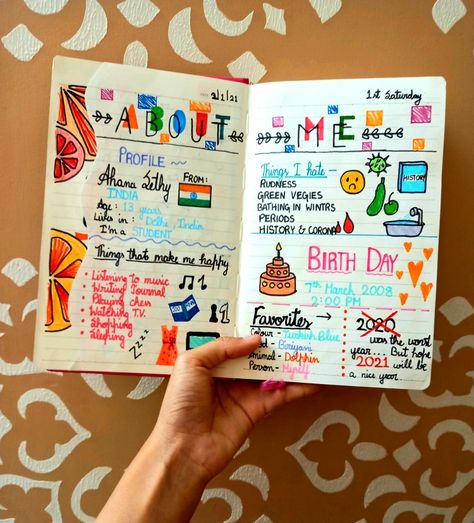 3/1/21
ABOUT
PROFILE
Ahana Sethy
INDIA
FROM:
Age: 13 years
Lives in: Delhi, India
I'm a STUDENT
Things that make me happy
Listening to music
Writing Journal
Playing chess
Watching T.V.
Shopping
Sleeping
zzz
1st Saturday
ME
Things I hate
RUDNESS
GREEN VEGIES
BATHING IN WINTRS
PERIODS
HISTORY & CORONA
HISTORY
BIRTH DAY
7th March 2008
2:00 PM
Favorites
Colour - Turkish Blue
Biriyani
Animal - Dolphin
Person - Myself
2020
was the worst
year... But hope
2021 will be
a nice year.